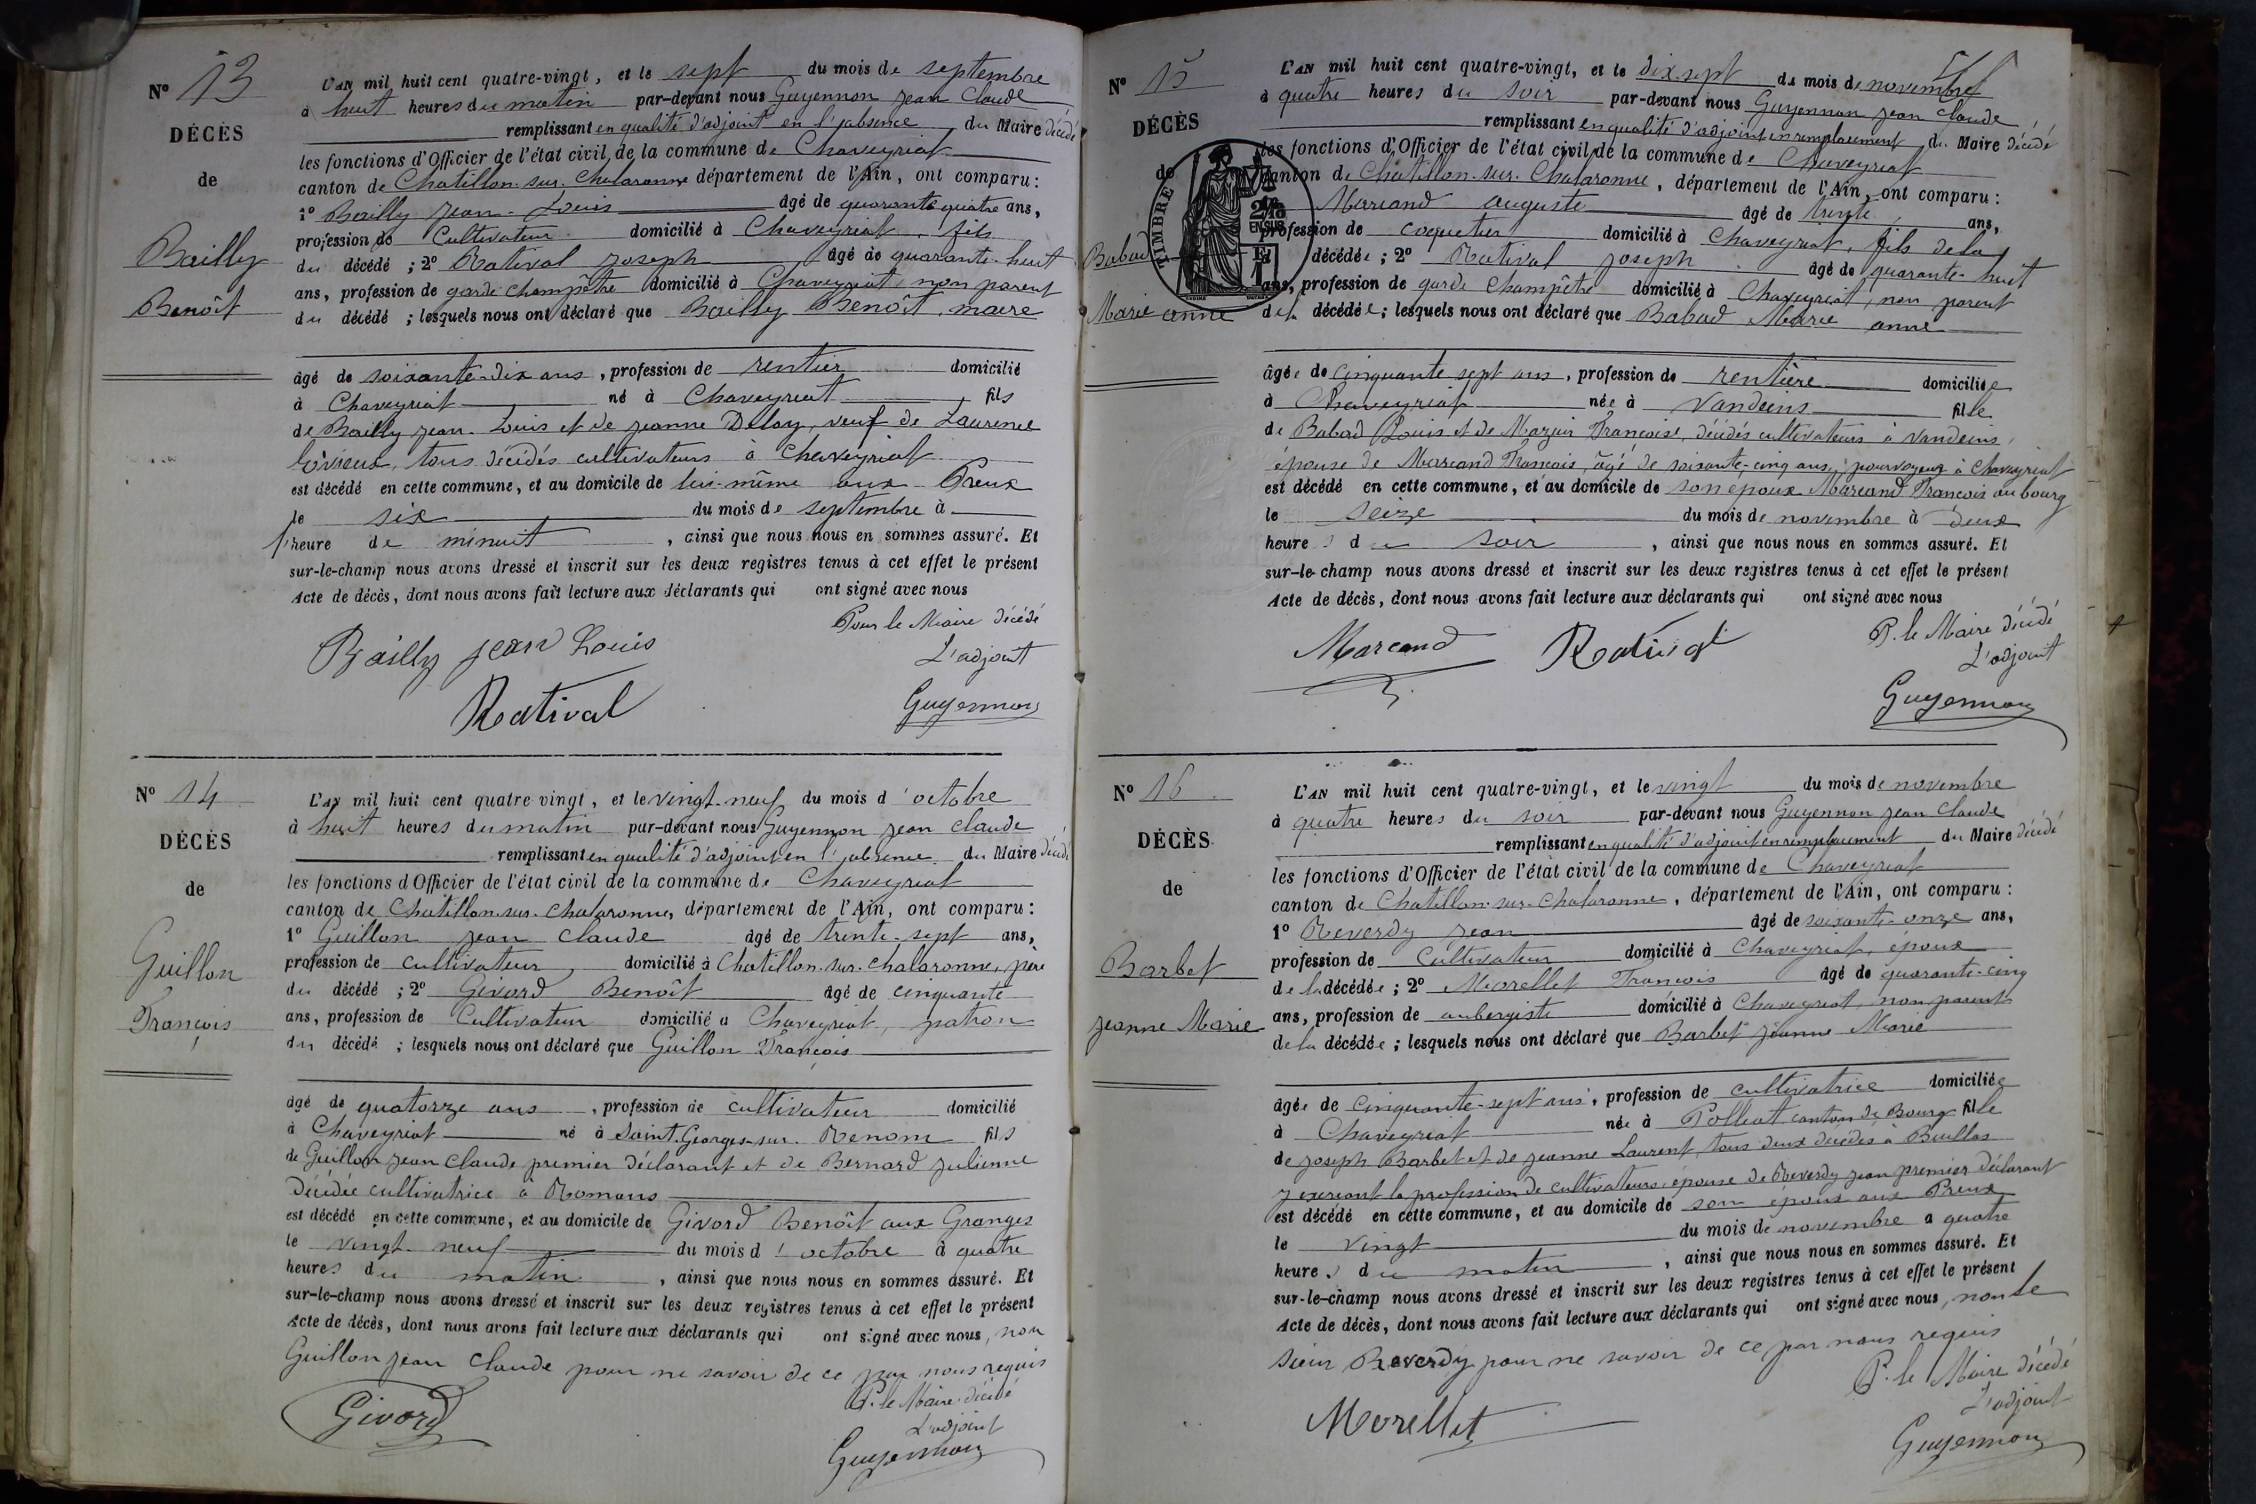 N° 13
DÉCÈS
de
Bailly
Benoît
L'AN mil huit cent quatre-vingt, et le sept du mois de septembre
à huit heures du matin par-devant nous Guyennon jean Claude
remplissant en qualité d'adjoint en l'absence du Maire décédé
les fonctions d'Officier de l'état civil de la commune de Chaveyriat
canton de Chatillon-sur-Chalaronne département de l'Ain, ont comparu :
1° Bailly Jean-Louis âgé de quarante quatre ans,
profession de Cultivateur domicilié à Chaveyriat, fils
du décédé ; 2° Rativал joseph âgé de quarante-huit
ans, profession de garde champêtre domicilié à Chaveyriat, non parent
du décédé ; lesquels nous ont déclaré que Bailly Benoît, maire
âgé de soixante-dix ans, profession de rentier domicilié
à Chaveyriat né à Chaveyriat fils
de Bailly jean-Louis et de jeanne Deloy, veuf de Laurence
tous décédés cultivateurs à Chaveyriat
est décédé en cette commune, et au domicile de lui-même aux Preux
le six du mois de septembre à
l'heure de minuit, ainsi que nous nous en sommes assuré. Et
sur-le-champ nous avons dressé et inscrit sur les deux registres tenus à cet effet le présent
Acte de décès, dont nous avons fait lecture aux déclarants qui ont signé avec nous
Pour le Maire décédé
Bailly jean Louis
L'adjoint
Ratival
Guyennon
N° 14
DÉCÈS
de
Guillon
François
L'AN mil huit cent quatre vingt, et le vingt-neuf du mois d'octobre
à huit heures du matin par-devant nous Guyennon jean claude
remplissant en qualité d'adjoint en l'absence du Maire décédé
les fonctions d'Officier de l'état civil de la commune de Chaveyriat
canton de Chatillon-sur-Chalaronne, département de l'Ain, ont comparu :
1° Guillon jean claude âgé de trente-sept ans,
profession de cultivateur domicilié à Chatillon-sur-chalaronne, père
du décédé ; 2° Givord Benoît âgé de cinquante
ans, profession de Cultivateur domicilié à Chaveyriat, patron
du décédé ; lesquels nous ont déclaré que Guillon François
âgé de quatorze ans, profession de cultivateur domicilié
à Chaveyriat né à Saint-Georges-sur-Renom fils
de Guillon jean claude premier déclarant et de Bernard julienne
décédée cultivatrice à Romans
est décédé en cette commune, et au domicile de Givord Benoît aux Granges
le vingt-neuf du mois d'octobre à quatre
heures du matin, ainsi que nous nous en sommes assuré. Et
sur-le-champ nous avons dressé et inscrit sur les deux registres tenus à cet effet le présent
Acte de décès, dont nous avons fait lecture aux déclarants qui ont signé avec nous, non
Guillon jean claude pour ne savoir de ce par nous requis
P. le Maire décédé
Givord
L'adjoint
Guyennon
N° 15
DÉCÈS
de
Babad
Marie anne
TIMBRE
L'AN mil huit cent quatre-vingt, et le dix-sept du mois de novembre
à quatre heures du soir par-devant nous Guyennon jean claude
remplissant en qualité d'adjoint en remplacement du Maire décédé
les fonctions d'Officier de l'état civil de la commune de Chaveyriat
canton de Châtillon-sur-Chalaronne, département de l'Ain, ont comparu :
Marcand auguste âgé de trente ans,
profession de coquetier domicilié à Chaveyriat, fils de la
décédée ; 2° Ratival joseph âgé de quarante-huit
ans, profession de garde champêtre domicilié à Chaveyriat, non parent
de la décédée ; lesquels nous ont déclaré que Babad Marie anne
âgée de cinquante sept ans, profession de rentière domiciliée
à Chaveyriat née à Vandeins fille
de Babad Louis et de Mazuir Françoise, décédés cultivateurs à Vandeins,
épouse de Marcand François, âgé de soixante-cinq ans, pourvoyeur à Chaveyriat
est décédé en cette commune, et au domicile de son époux Marcand François au bourg
le seize du mois de novembre à deux
heures du soir, ainsi que nous nous en sommes assuré. Et
sur-le-champ nous avons dressé et inscrit sur les deux registres tenus à cet effet le présent
Acte de décès, dont nous avons fait lecture aux déclarants qui ont signé avec nous
P. le Maire décédé
Marcand Ratival
L'adjoint
Guyennon
N° 16
DÉCÈS
de
Barbet
jeanne Marie
L'AN mil huit cent quatre-vingt, et le vingt du mois de novembre
à quatre heures du soir par-devant nous Guyennon jean Claude
remplissant en qualité d'adjoint en remplacement du Maire décédé
les fonctions d'Officier de l'état civil de la commune de Chaveyriat
canton de Chatillon-sur-Chalaronne, département de l'Ain, ont comparu :
1° Reverdy jean âgé de soixante-onze ans,
profession de Cultivateur domicilié à Chaveyriat, époux
de la décédée ; 2° Morellet François âgé de quarante-cinq
ans, profession de aubergiste domicilié à Chaveyriat, non parent
de la décédée ; lesquels nous ont déclaré que Barbet jeanne Marie
âgée de cinquante-sept ans, profession de cultivatrice domiciliée
à Chaveyriat née à Polliat canton de Bourg fille
de joseph Barbet et de jeanne Laurent, tous deux décédés à Buellas
y exercant la profession de cultivateurs, épouse de Reverdy jean premier déclarant
est décédé en cette commune, et au domicile de son époux aux Preux
le vingt du mois de novembre à quatre
heures du matin, ainsi que nous nous en sommes assuré. Et
sur-le-champ nous avons dressé et inscrit sur les deux registres tenus à cet effet le présent
Acte de décès, dont nous avons fait lecture aux déclarants qui ont signé avec nous, non le
sieur Reverdy pour ne savoir de ce par nous requis
P. le Maire décédé
Morellet
L'adjoint
Guyennon